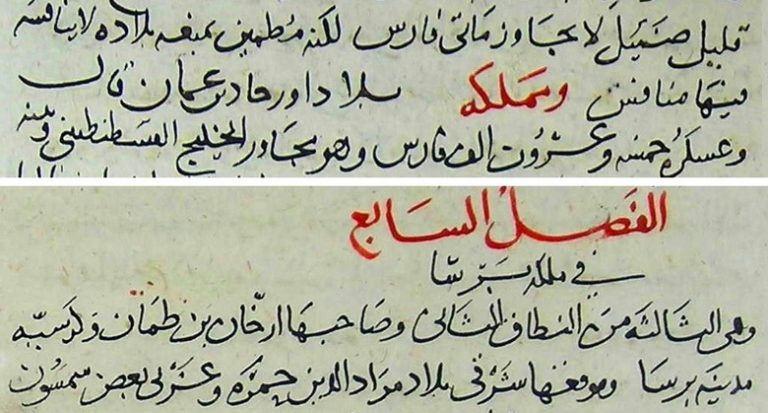 قليل ضئيل لا يجاوز ماتى فارس لكنه مطمين بمنعه بلاده لا ينافسه
فيها منافس ومملكه بلاد اورخان بن عمان قال
وعسكره خمسه وعشرون الف فارس وهو مجاور الخليج القسطنطينى وبينه
الفصل السابع
في مملكه برسا
وهى الثالثه من النطاق الثانى وصاحبها ارخان بن طمان وكرسيه
مدينه برسا وموقعها شرقى بلاد مراد الدين حمزه وغربى بعض سمسون